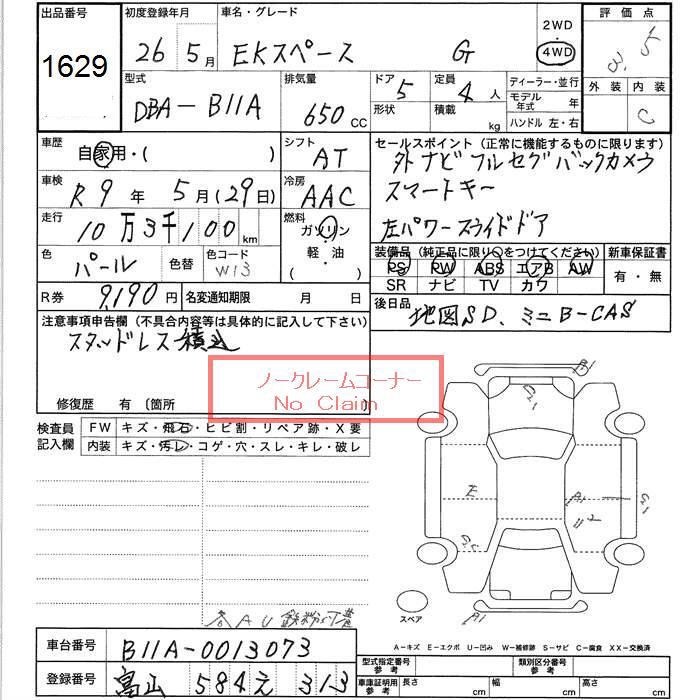 出品番号 初度登録年月 車名・グレード 2WD 評価点
1629 26年 5月 EKスペース G 4WD 3.5
外装 内装
C
型式 排気量 ドア 定員 ディーラー・並行
DBA-B11A 650cc 5 4人 モデル年式 年
形状 積載 kg ハンドル 左・右
車歴 シフト セールスポイント(正常に機能するものに限ります)
自家用・( ) AT 外ナビ フルセグ バックカメラ
車検 冷房 スマートキー
R9年 5月(29日) AAC
走行 燃料 左パワースライドドア
10万3千100km ガソリン
軽・油
( )
色 色替 色コード 装備品(純正品に限り○をつけてください) 新車保証書
パール W13 PS PW ABS エアB AW 有・無
SR ナビ TV カワ
R券 9,190円 名変通知期限 月 日 後日品
地図SD、ミニB-CAS
注意事項申告欄(不具合内容等は具体的に記入して下さい)
スタッドレス積込
ノークレームコーナー
No Claim
修復歴 有 〔箇所
検査員記入欄 FW キズ・飛石・ヒビ割・リペア跡・X要
内装 キズ・汚レ・コゲ・穴・スレ・キレ・破レ
A1
E
A1
U2
G1
A1
各AU 鉄粉
スペア
A-キズ E-エクボ U-凹み W-補修跡 S-サビ C-腐食 XX-交換済
車台番号 B11A-0013073
登録番号 富山 584 え 313
型式指定番号 参考 類別区分番号 参考
車庫証明用 参考 長さ cm 幅 cm 高さ cm